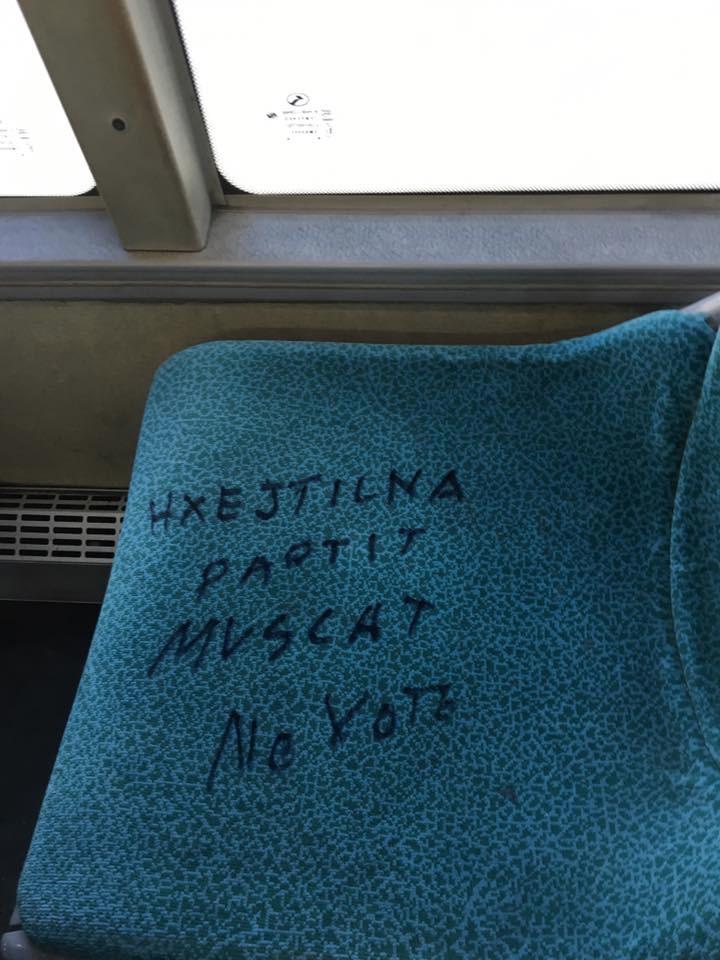 HXEJTILNA
PARTIT
MUSCAT
No VOTE